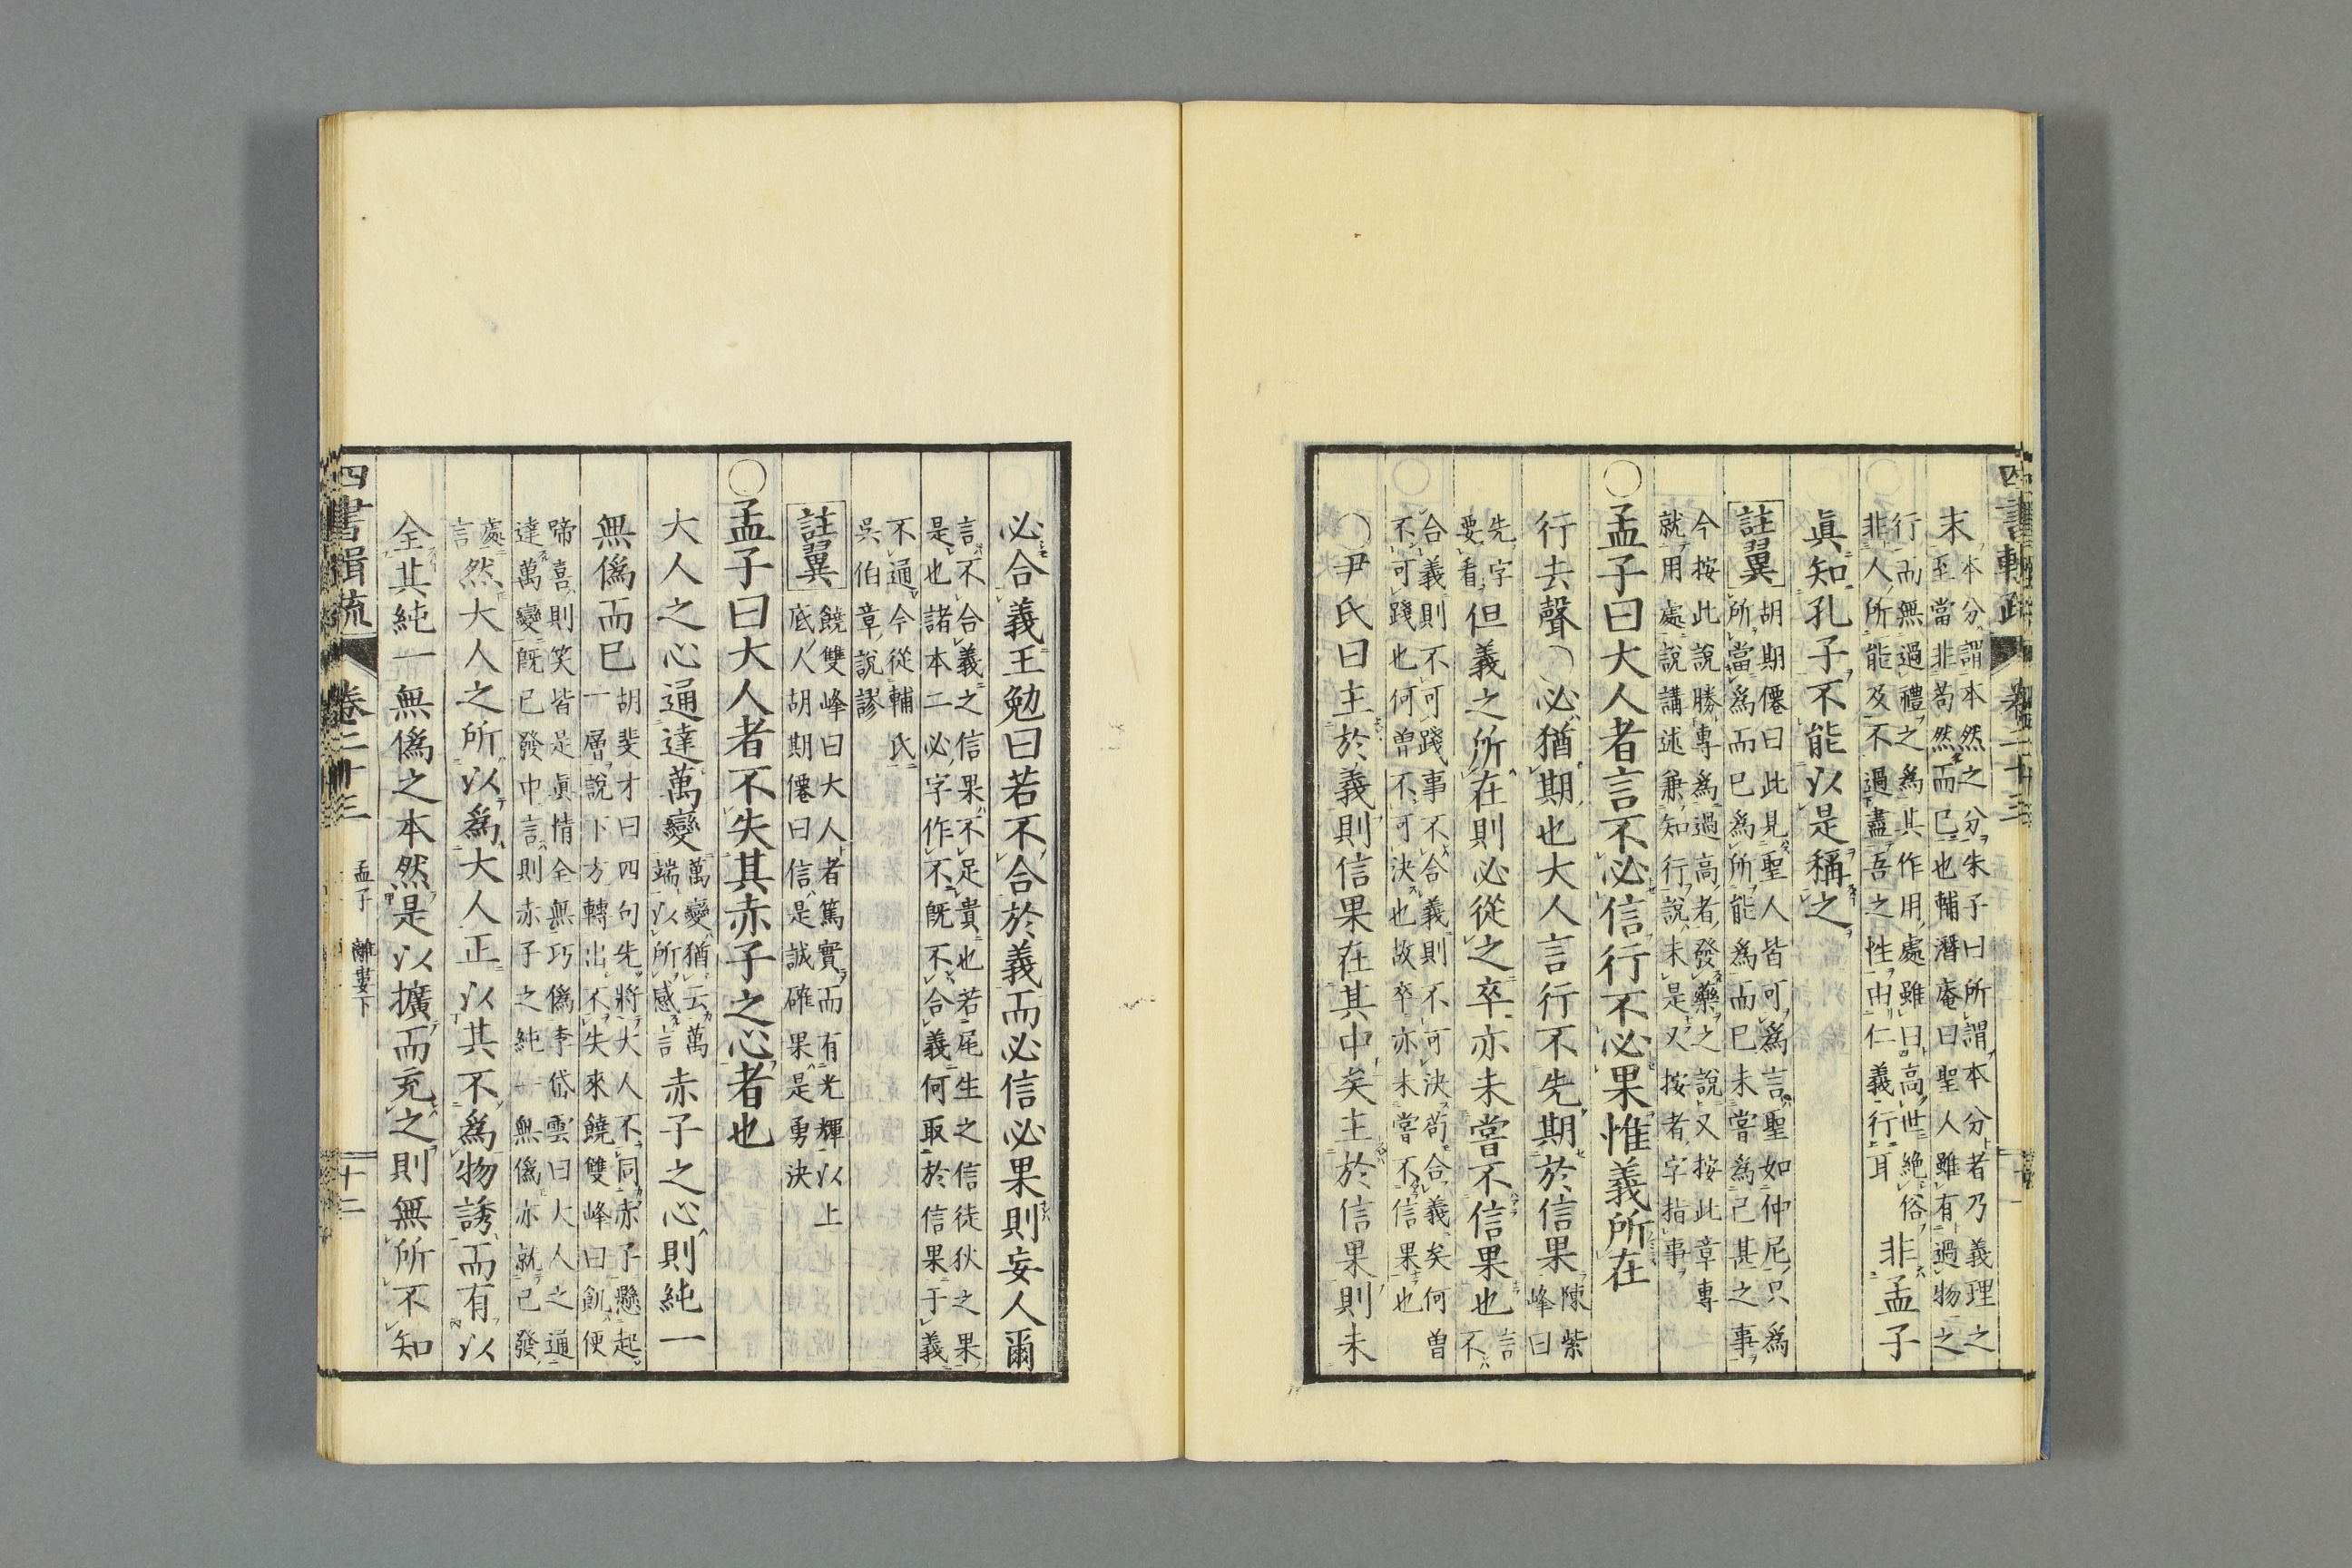 四書輯疏 卷二十三
末本分謂本然之分朱子曰所謂本分者乃義理之
至當非苟然而已也輔潛庵曰聖人雖有過物之
行而無過禮之爲其作用處雖曰高世絶俗
非人所能及不過盡吾之性由仁義行耳非孟子
眞知孔子不能以是稱之
註翼胡期僊曰此見聖人皆可爲言聖如仲尼只爲
所當爲而已爲所能爲而已未嘗爲已甚之事
今按此說勝專爲過高者發藥之說又按此章專
就用處說講述兼知行說未是又按者字指事
○孟子曰大人者言不必信行不必果惟義所在
行去聲○必猶期也大人言行不先期於信果陳紫峰曰
先字要看但義之所在則必從之卒亦未嘗不信果也言不
合義則不可踐事不合義則不可決苟合義矣何曾
不可踐也何曾不可決也故卒亦未嘗不信果也
○尹氏曰主於義則信果在其中矣主於信果則未
必合義王勉曰若不合於義而必信必果則妄人爾
言不合義之信果不足貴也若尾生之信徒狄之果
是也諸本二必字作不既不合義何取於信果于義
不通今從輔氏
吳伯章說謬
註翼饒雙峰曰大人者篤實而有光輝以上
底人胡期僊曰信是誠確果是勇決
○孟子曰大人者不失其赤子之心者也
大人之心通達萬變萬變猶云萬端以所感言赤子之心則純一
無僞而已胡斐才曰四句先將大人不同赤子懸起
一層說下方轉出不失來饒雙峰曰飢便
啼喜則笑皆是眞情全無巧僞李岱雲曰大人之通
達萬變既已發中言則赤子之純一無僞亦就已發
處言然大人之所以爲大人正以其不爲物誘而有以
全其純一無僞之本然是以擴而充之則無所不知
四書輯疏 卷二十三 孟子 離婁下 十二